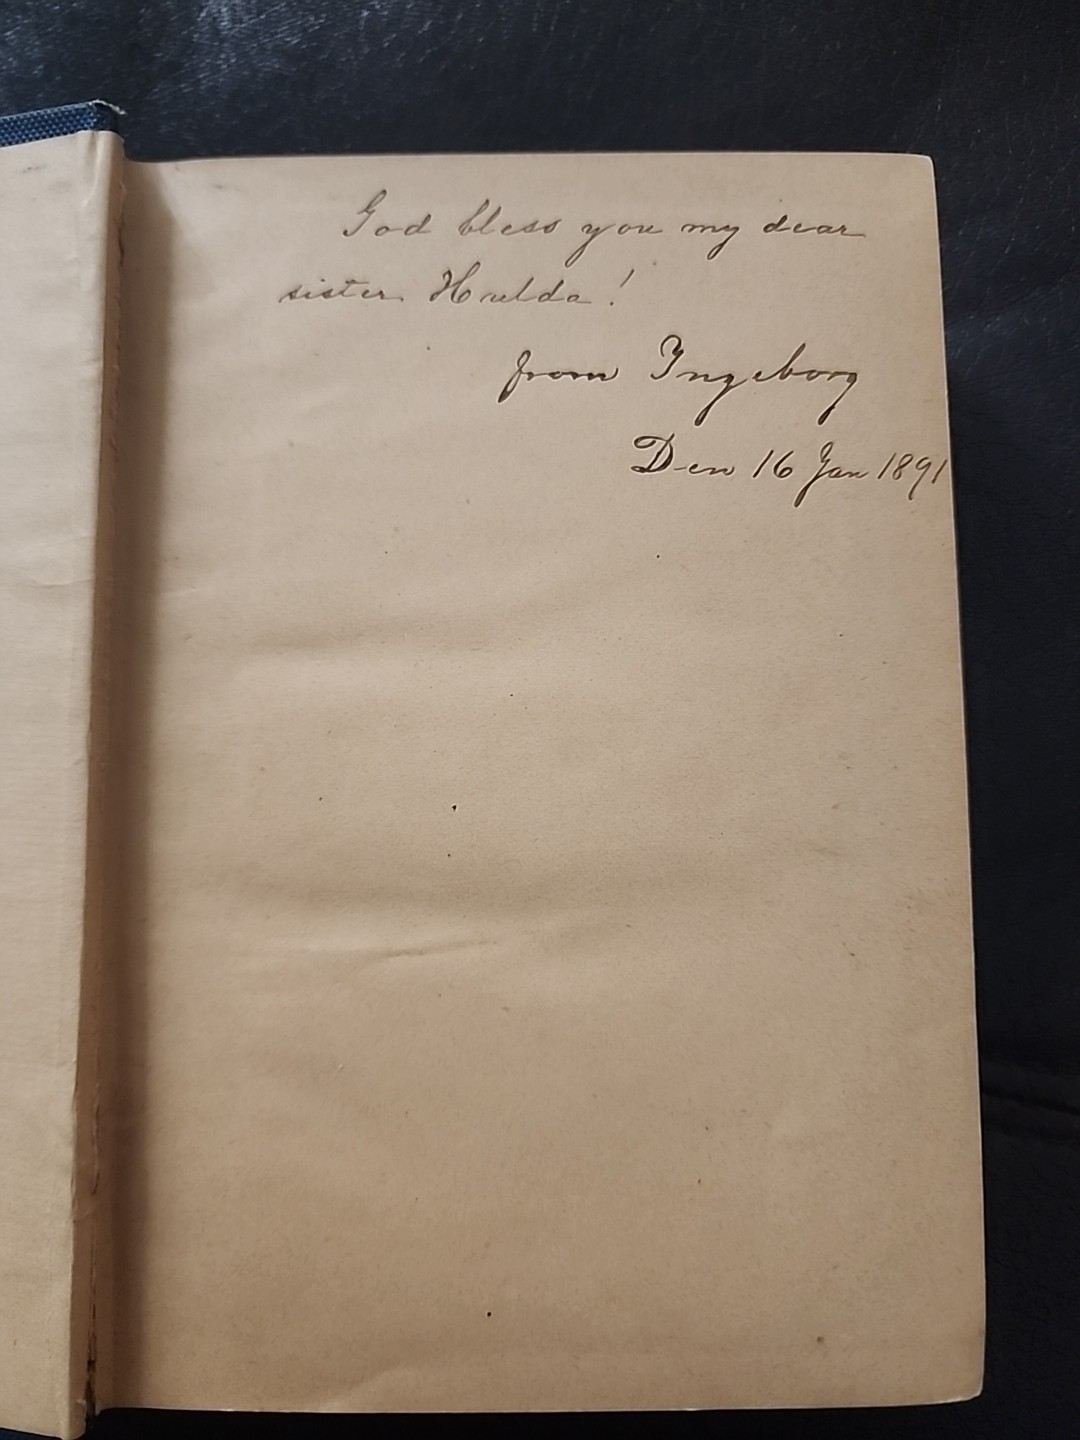 God bless you my dear
sister Hulda!
from Ingeborg
Den 16 Jan 1891